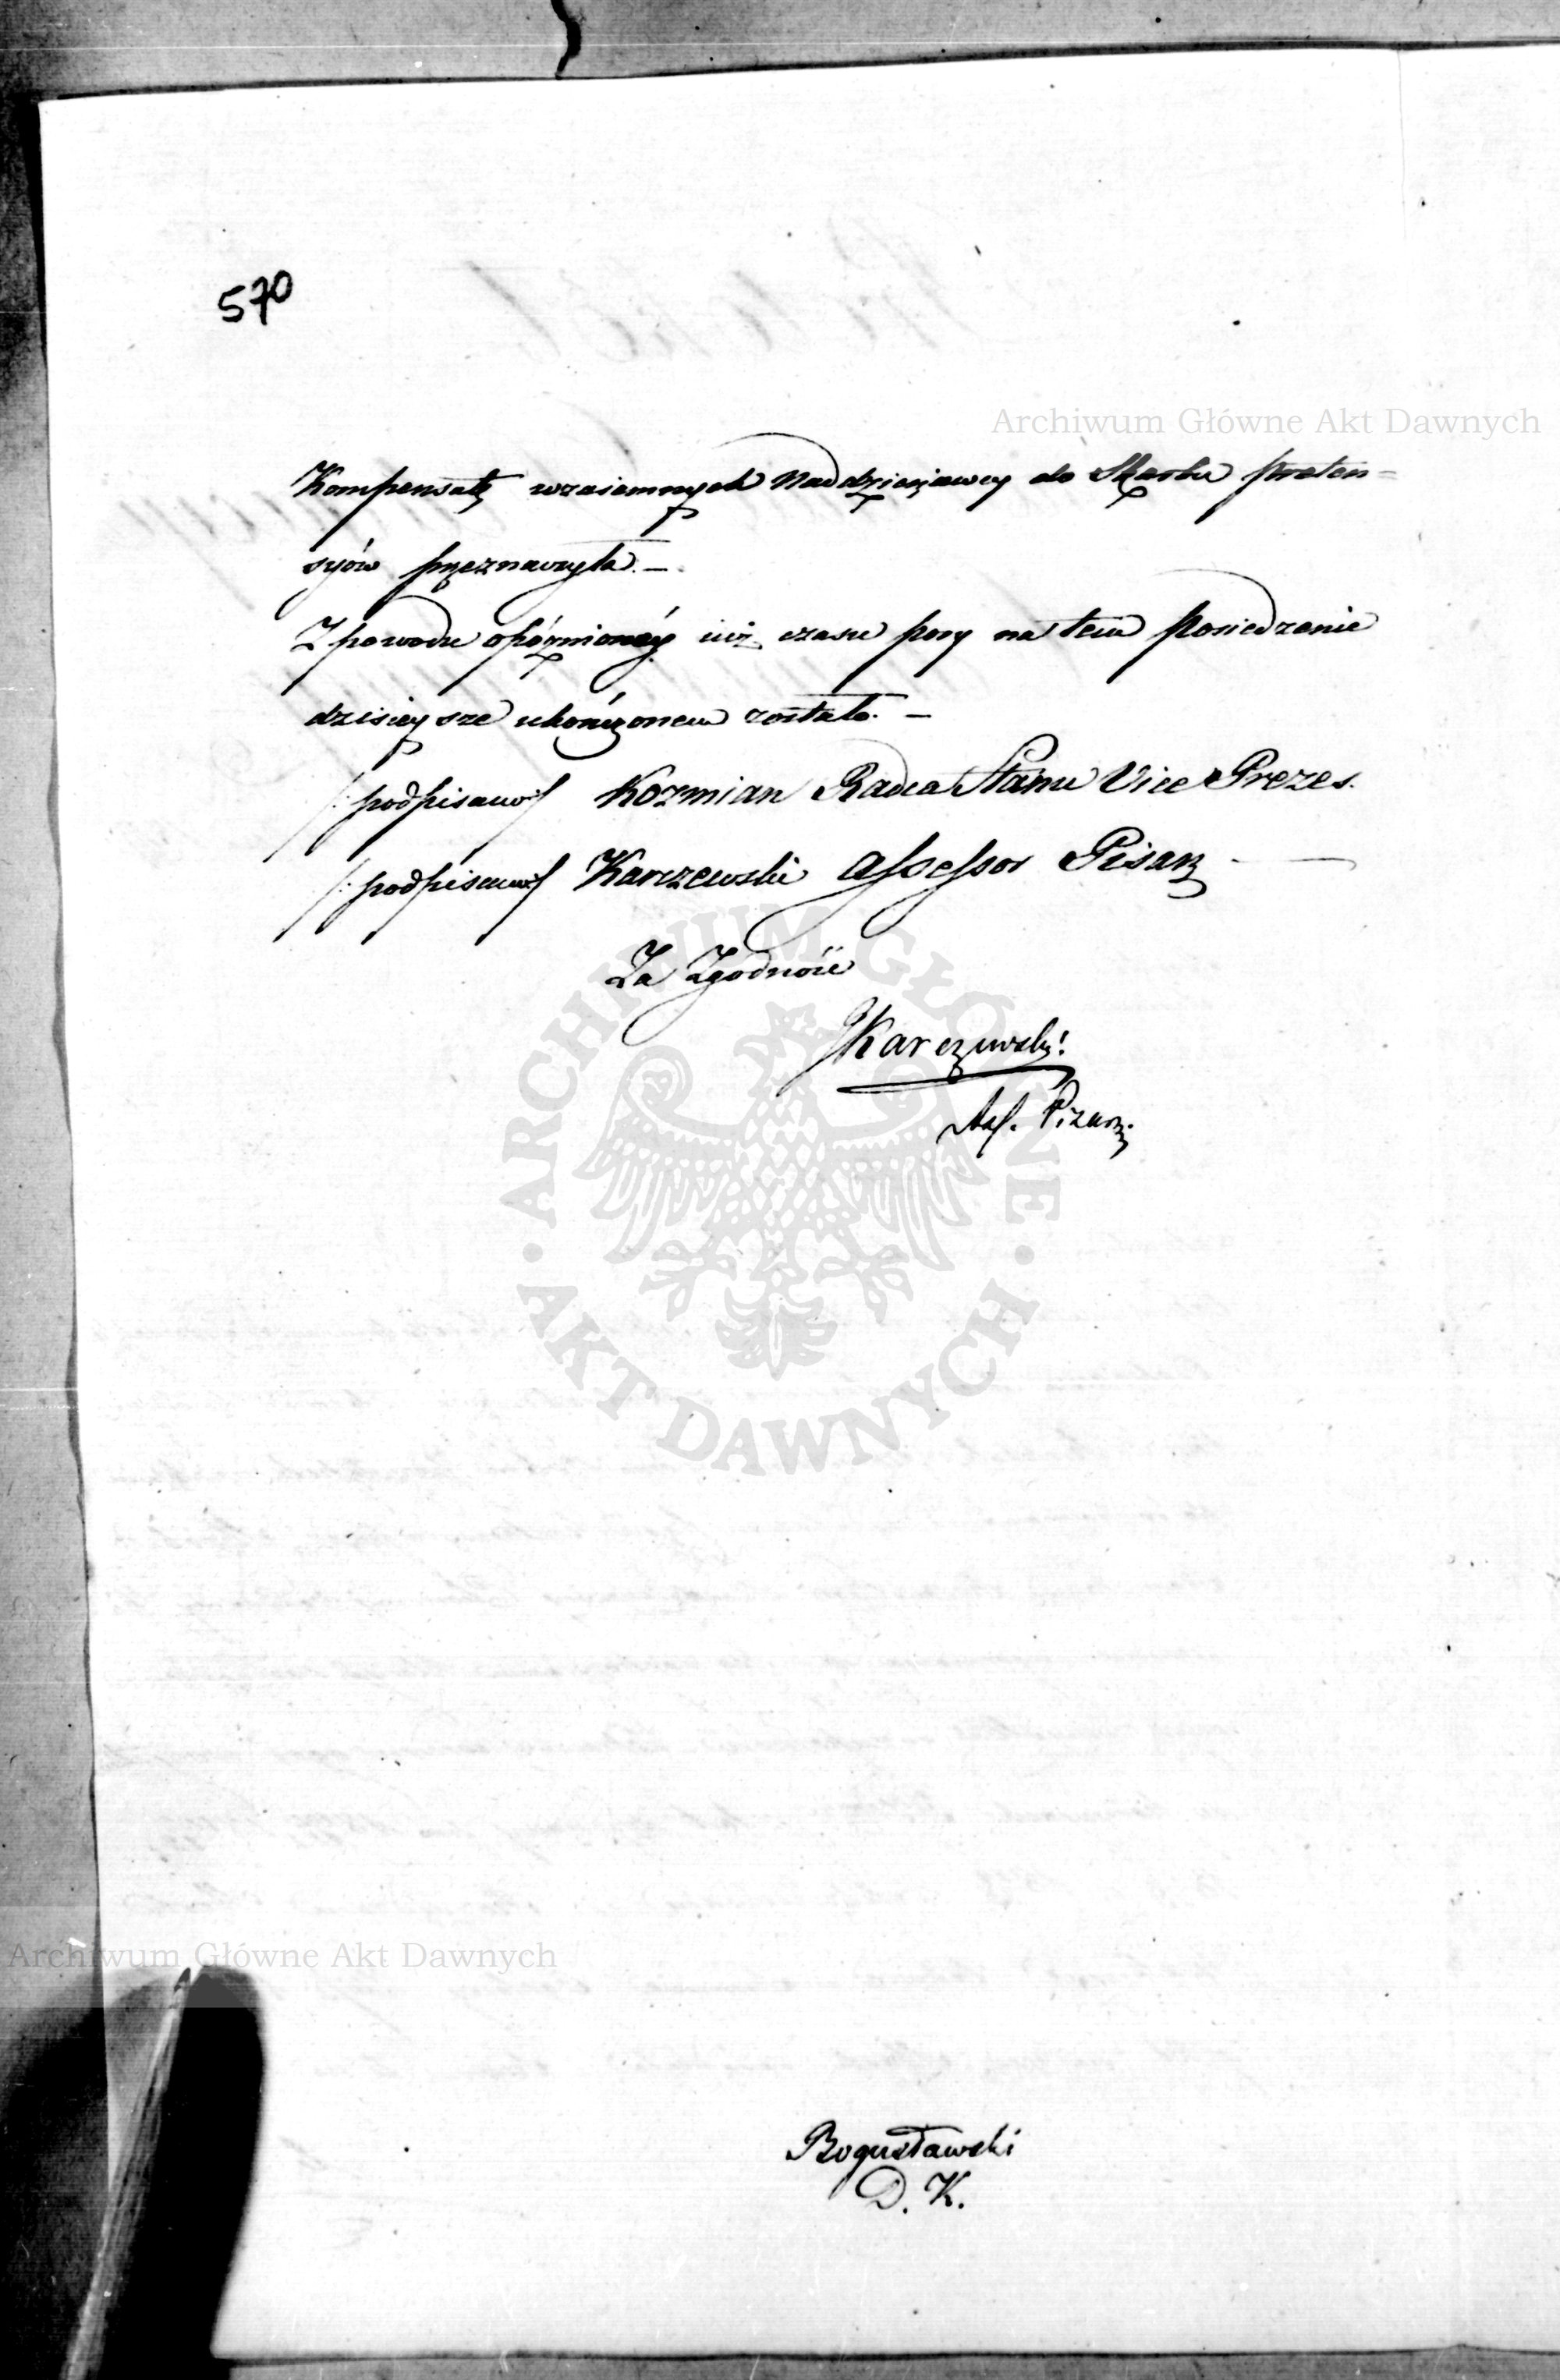 570
Archiwum Główne Akt Dawnych
Kompensatę wzaiemnych Naddzierżawcy do Skarbu preten=
syów przeznaczyła. —
Z powodu opóźnionéy iuż czasu pory na tem Posiedzenie
dzisieysze ukończonem zostało. —
/: podpisano :/ Kozmian Radca Stanu Vice Prezes.
/: podpisano :/ Karczewski Assessor Pisarz —
Za Zgodność
JKarczewski
Ass. Pisarz.
ARCHIWUM GŁÓWNE · AKT DAWNYCH ·
Archiwum Główne Akt Dawnych
Bogusławski
D. K.